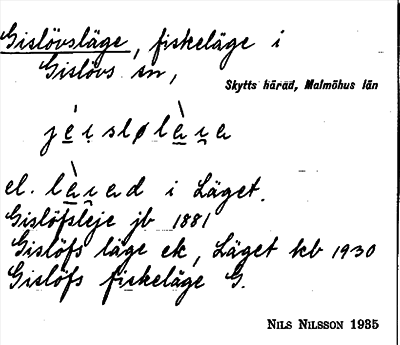 Gislövsläge, fiskeläge i
Gislövs sn,
Skytts härad, Malmöhus län
jèi̯sløl̀ai̯a
el. l̀ai̯ad i Läget.
Gislöfsleje jb 1881
Gislöfs läge ek, Läget kb 1930
Gislöfs fiskeläge G.
NILS NILSSON 1935